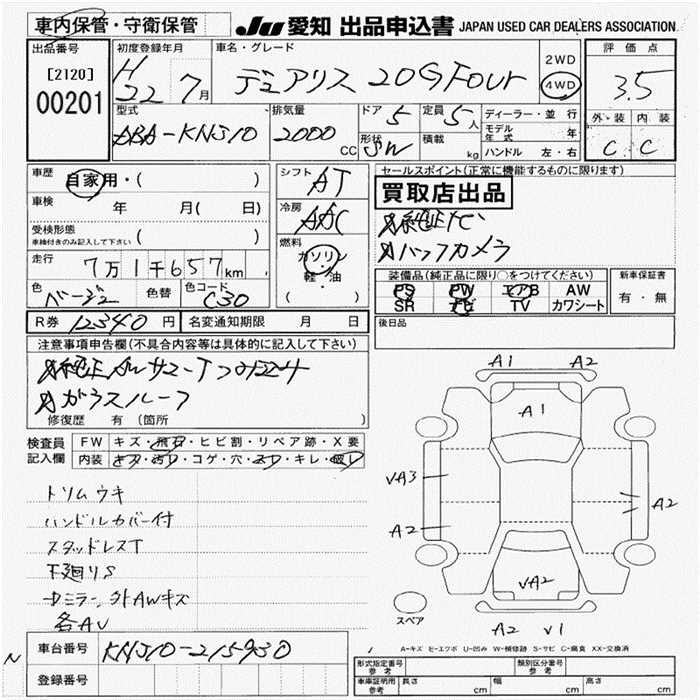 車内保管・守衛保管
JU 愛知 出品申込書 JAPAN USED CAR DEALERS ASSOCIATION
出品番号
[2120]
00201
初度登録年月
H22 7月
車名・グレード
デュアリス 20G Four
2WD
4WD
評価点
3.5
外・装 内・装
C C
型式
ABA-KNJ10
排気量
2000 CC
ドア 5
形状 SW
定員 5人
積載 kg
ディーラー・並行
モデル年式 年
ハンドル 左・右
車歴
自家用・( )
車検 年 月( 日)
受検形態
車検付きのみ記入して下さい ( )
走行 7万1千657km
色 ベージュ 色替 色コード C30
シフト AT
冷房 AAC
燃料
ガソリン
軽・油
( )
セールスポイント(正常に機能するものに限ります)
買取店出品
純正ナビ
バックカメラ
装備品(純正品に限り○をつけてください)
PS PW エアB AW
SR ナビ TV カワシート
新車保証書
有・無
R券 12340円 名変通知期限 月 日
後日品
注意事項申告欄(不具合内容等は具体的に記入して下さい)
ガラスルーフ
修復歴 有(箇所 )
検査員記入欄
FW キズ・飛石・ヒビ割・リペア跡・X要
内装 キズ・汚れ・コゲ・穴・スレ・キレ・破レ
トリムウキ
ハンドルカバー付
スタッドレスT
下廻りS
ミラー、外AWキズ
各AU
A1 A2
A1
VA3
A2
A2
VA2
スペア
A2 V1
A-キズ E-エクボ U-凹み W-補修跡 S-サビ C-腐食 XX-交換済
N
車台番号 KNJ10-215930
登録番号
形式指定番号 参考
類別区分番号 参考
車庫証明用 参考 長さ cm 幅 cm 高さ cm